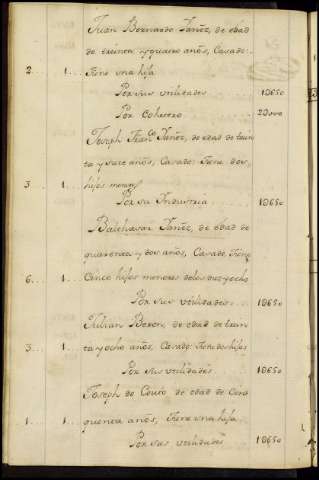 Juan Bernardo Yañez, de edad
de treinta y quatro años, Casado:
2 .. 1... tiene una hija
Por sus utilidades .... 1650
Por Cohetero .... 2
Joseph Franco Yañez, de edad de trein
ta y siete años, Casado: tiene dos
3 .. 1... hijos menores
Por su Industria .... 1650
Balthasar Yañez, de edad de
quarenta y dos años, Casado, tiene
6 .. 1... Cinco hijos menores de diez y ocho
Por sus utilidades .. 1650
Julian de edad de trein
3 .. 1... ta y ocho años, Casado: tiene dos hijos
Por sus utilidades .. 1650
Joseph do Couto de edad de Cin
1 .. 1... quenta años, tiene una hija
Por sus utilidades .. 1650